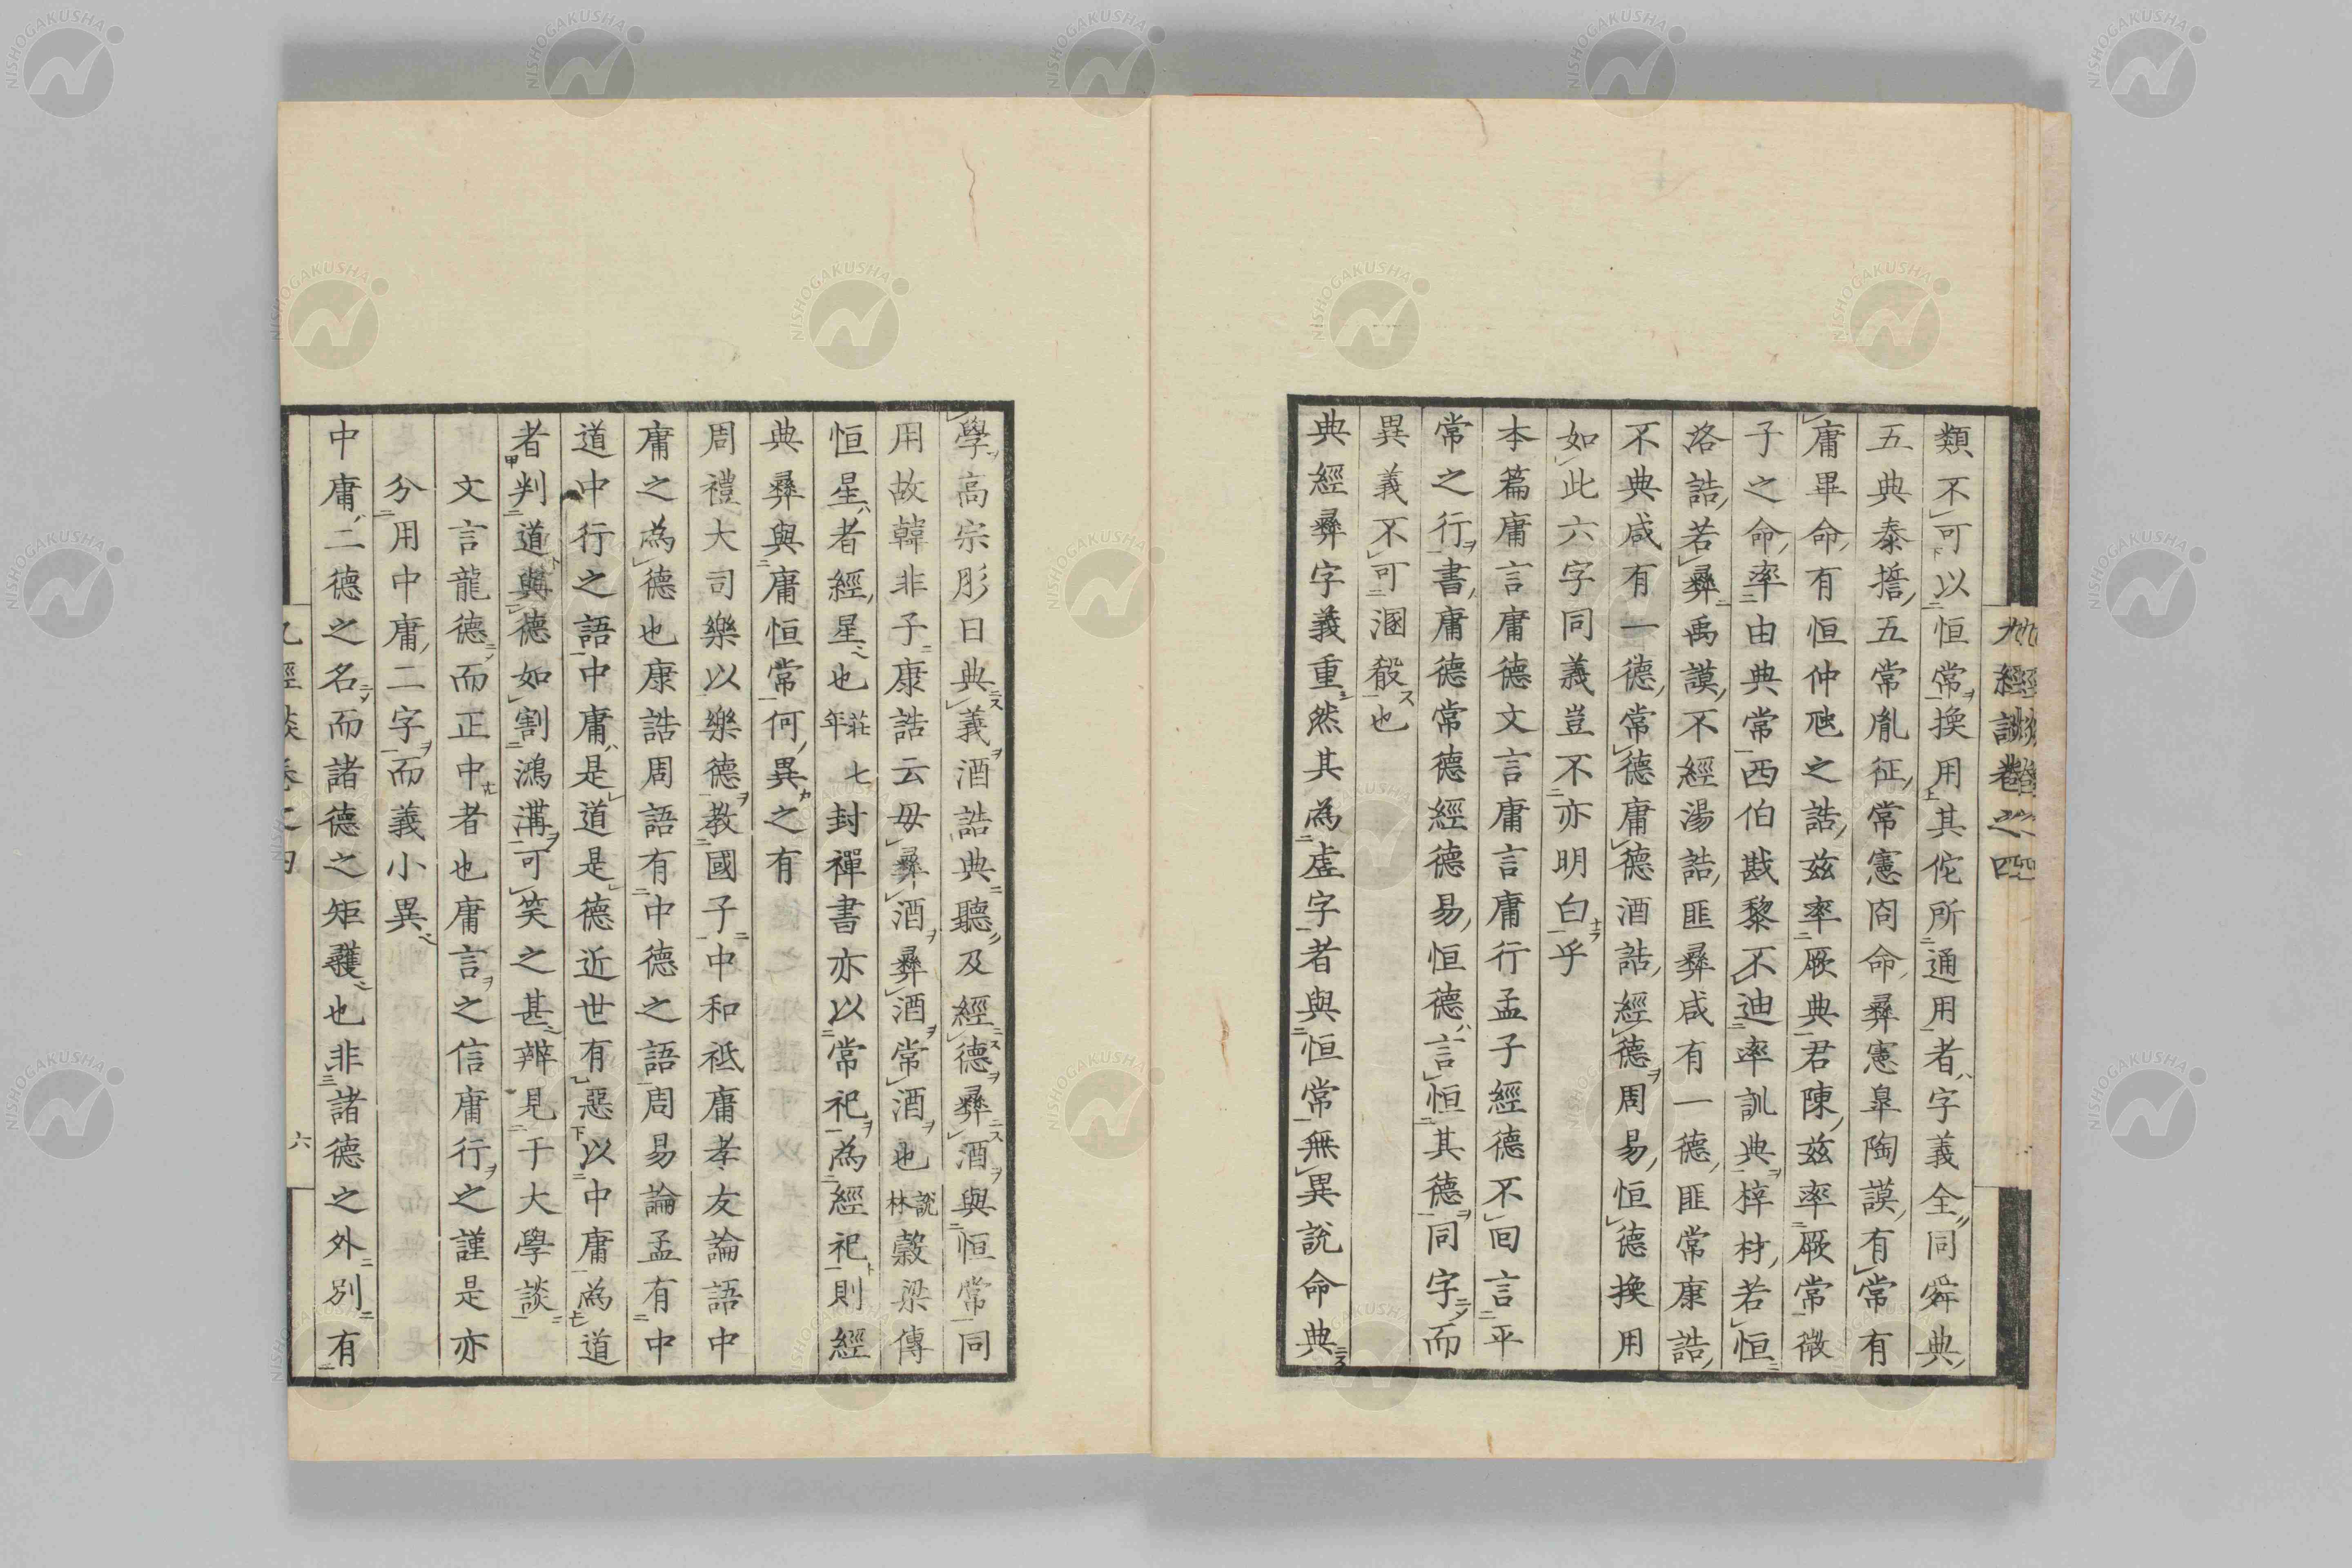 九經談卷之四
類不可以恒常換用其佗所通用者字義全同舜典
五典泰誓五常胤征常憲冏命彛憲臯陶謨有常有
庸畢命有恒仲虺之誥玆率厥典君陳玆率厥常微
子之命率由典常西伯戡黎不迪率訓典梓材若恒
洛誥若彛禹謨不經湯誥匪彛咸有一德匪常康誥
不典咸有一德常德庸德酒誥經德周易恒德換用
如此六字同義豈不亦明白乎
本篇庸言庸德文言庸言庸行孟子經德不回言平
常之行書庸德常德經德易恒德言恒其德同字而
異義不可溷殽也
典經彛字義重然其為虛字者與恒常無異說命典
學高宗肜日典義酒誥典聽及經德彛酒與恒常同
用故韓非子康誥云毋彛酒彛酒常酒也說林穀梁傳
恒星者經星也莊七年封禪書亦以常祀為經祀則經
典彛與庸恒常何異之有
周禮大司樂以樂德教國子中和祗庸孝友論語中
庸之為德也康誥周語有中德之語周易論孟有中
道中行之語中庸是道是德近世有惡以中庸為道
者判道與德如割鴻溝可笑之甚辨見于大學談
文言龍德而正中者也庸言之信庸行之謹是亦
分用中庸二字而義小異
中庸二德之名而諸德之矩矱也非諸德之外別有
六